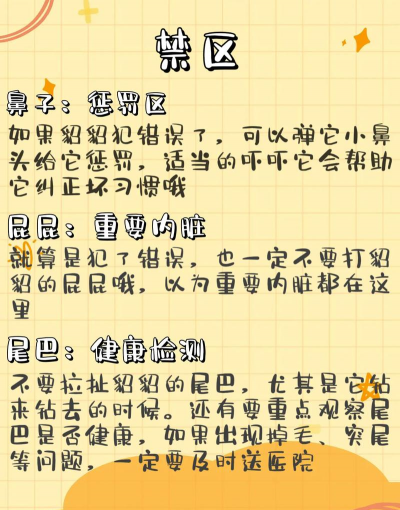 禁区
鼻子：惩罚区
如果貂貂犯错误了，可以弹它小鼻
头给它惩罚，适当的吓吓它会帮助
它纠正坏习惯哦
屁屁：重要内脏
就算是犯了错误，也一定不要打貂
貂的屁屁哦，以为重要内脏都在这
里
尾巴：健康检测
不要拉扯貂貂的尾巴，尤其是它钻
来钻去的时候。还有要重点观察尾
巴是否健康，如果出现掉毛、突尾
等问题，一定要及时送医院